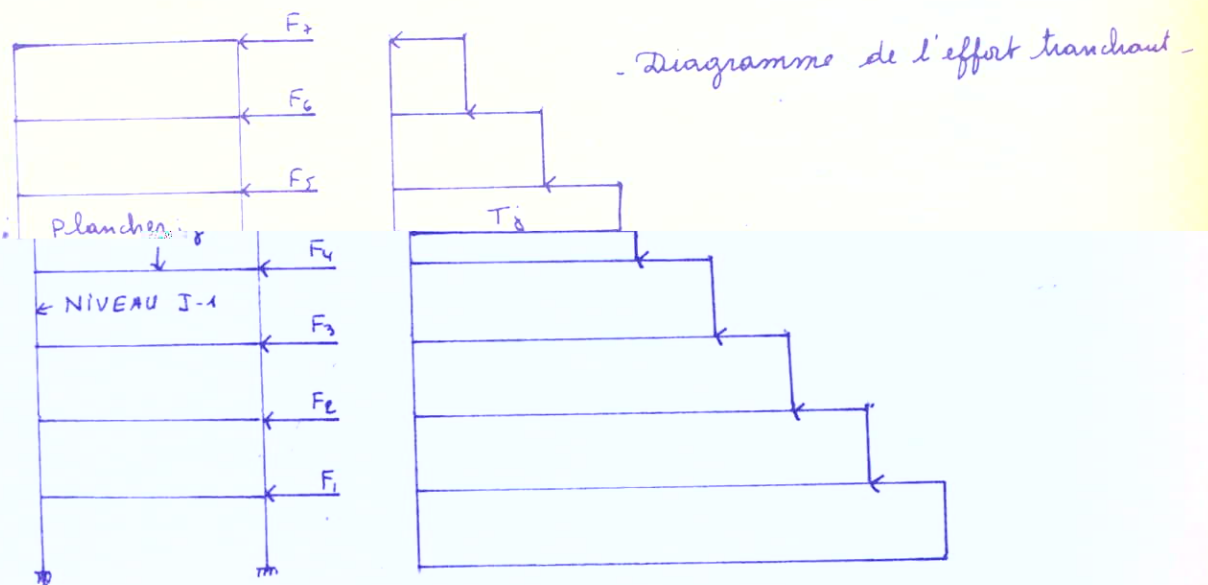 F7
- Diagramme de l'effort tranchant -
F6
F5
Plancher j
Tj
F4
← NIVEAU J-1
F3
F2
F1